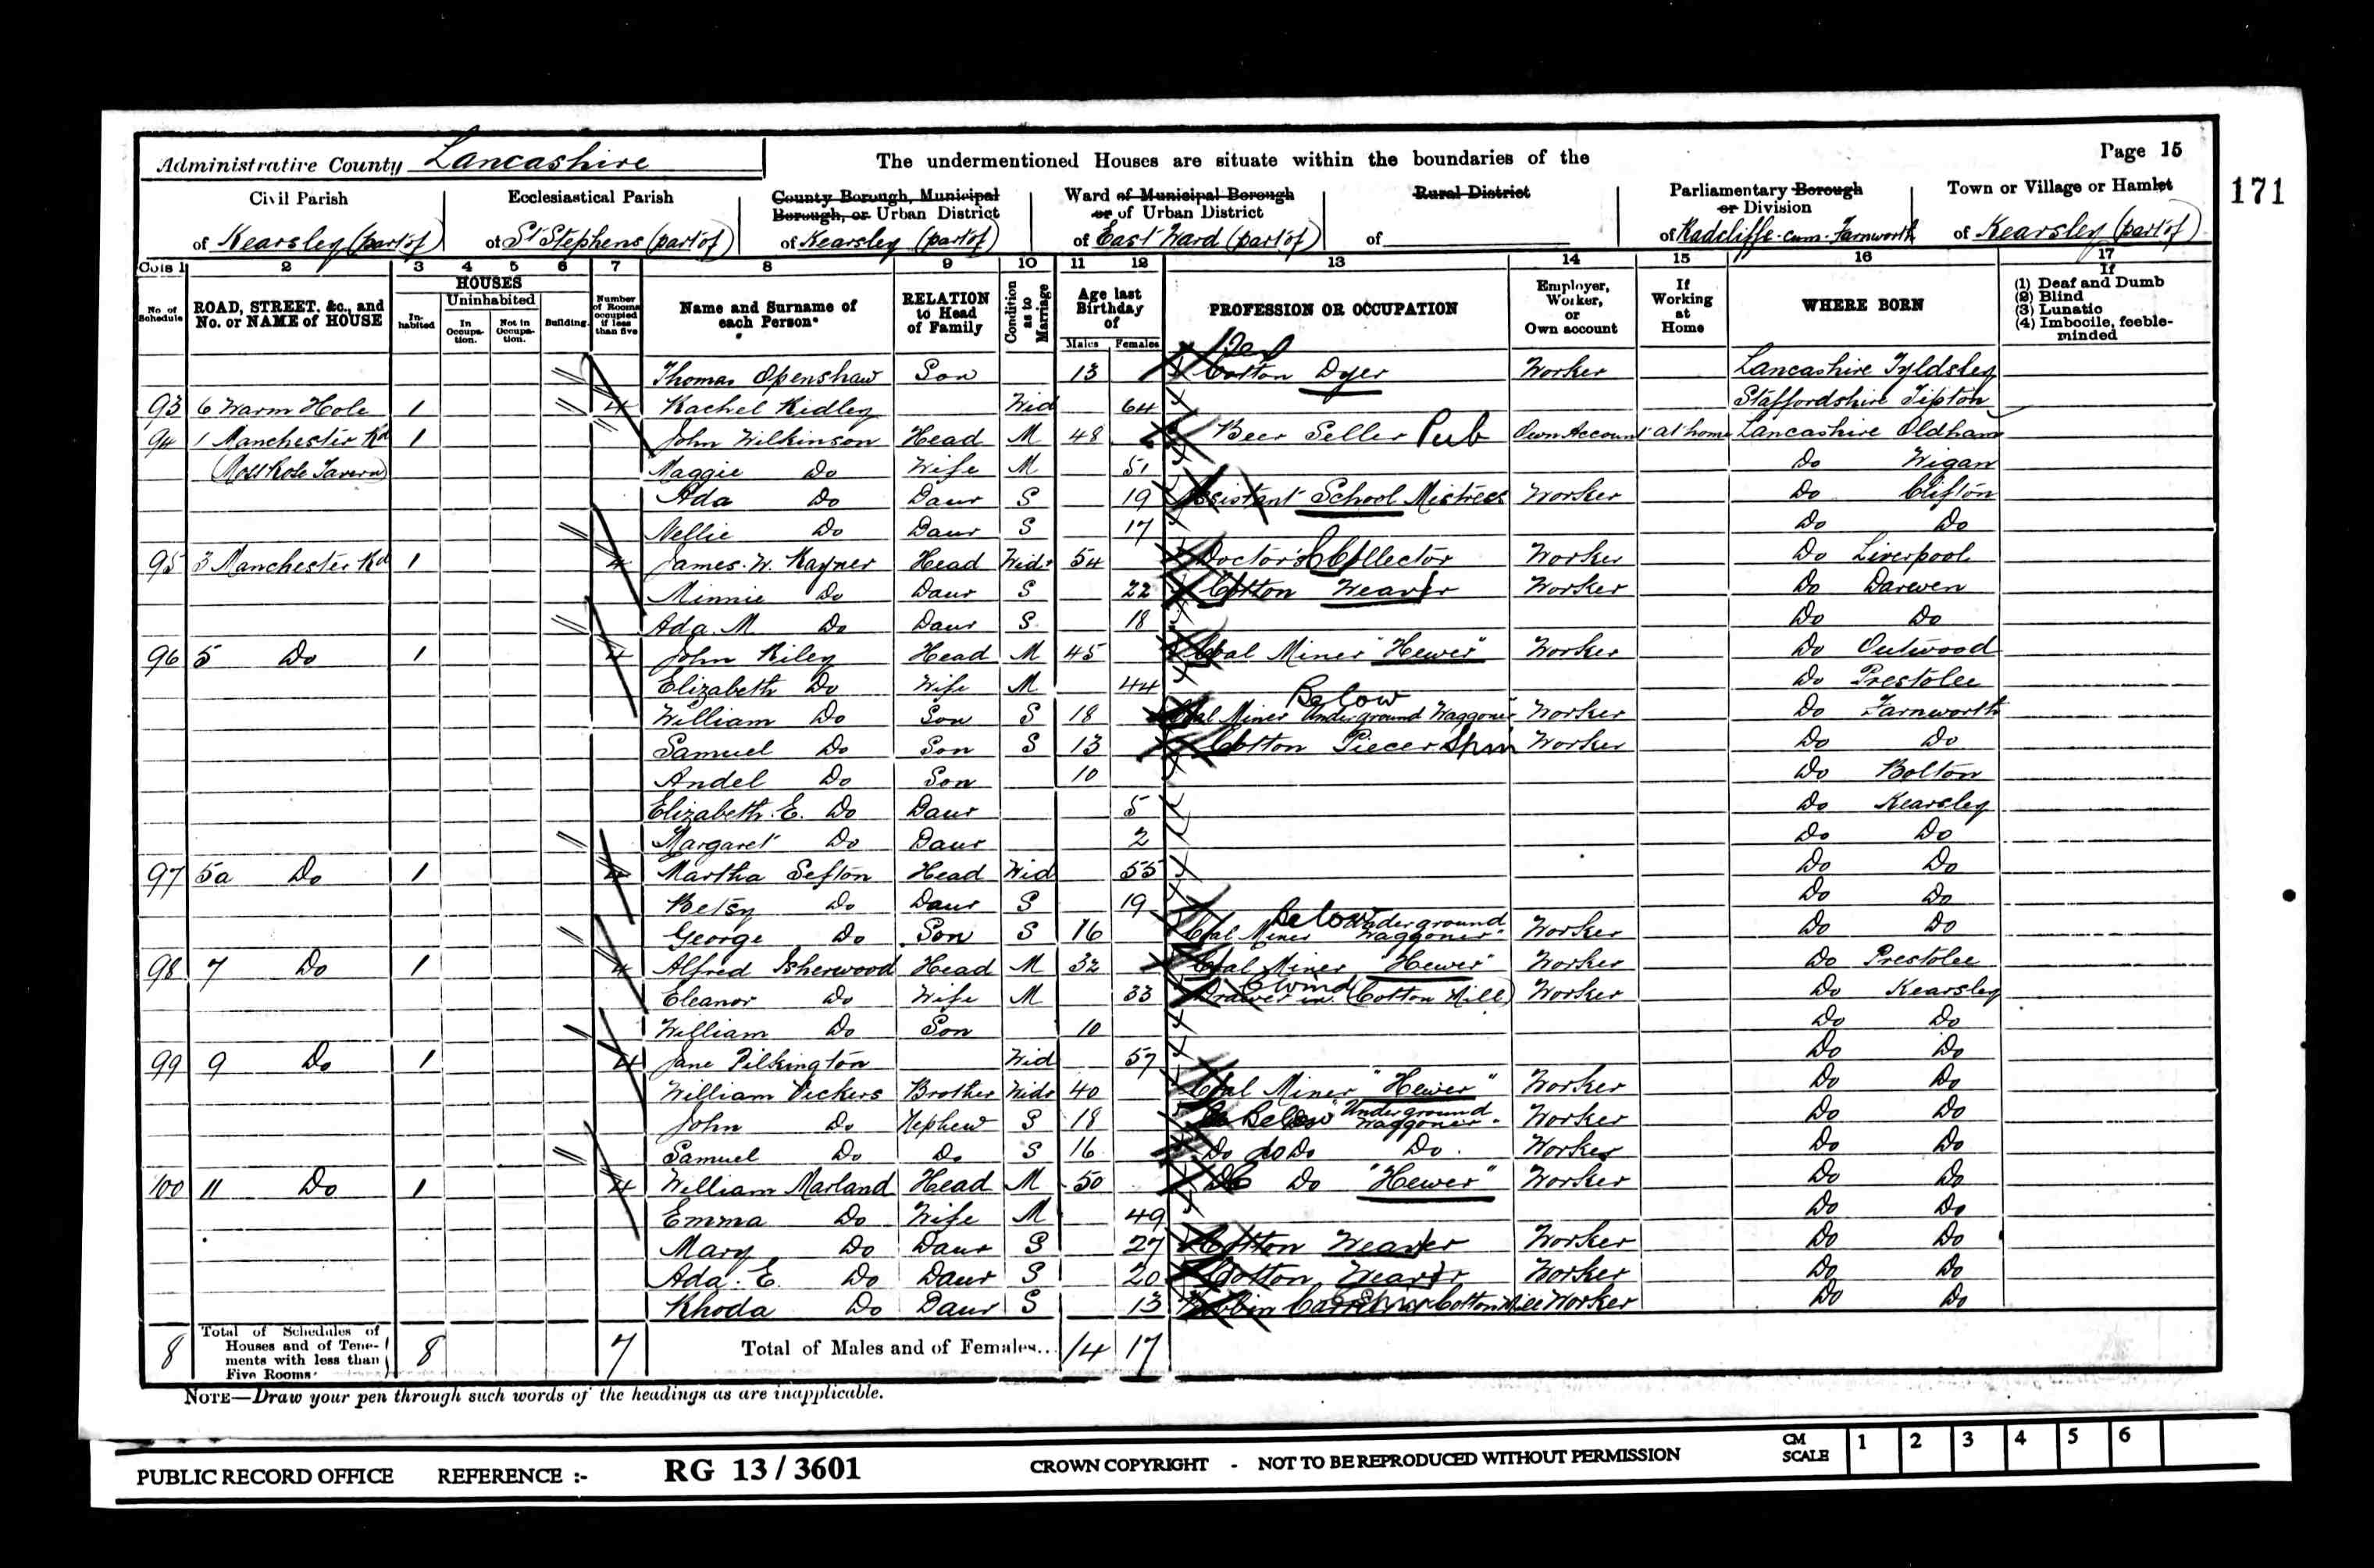 Administrative County Lancashire
The undermentioned Houses are situate within the boundaries of the
Page 15
171
Civil Parish of Kearsley (part of)
Ecclesiastical Parish of St Stephens (part of)
County Borough, Municipal Borough, or Urban District of Kearsley (part of)
Ward of Municipal Borough or of Urban District of East Ward (part of)
Rural District of
Parliamentary Borough or Division of Radcliffe-cum-Farnworth
Town or Village or Hamlet of Kearsley (part of)
Cols 1 2 3 4 5 6 7 8 9 10 11 12 13 14 15 16 17
No. of Schedule
ROAD, STREET, &c., and No. or NAME of HOUSE
HOUSES
Inhabited
Uninhabited
In Occupation.
Not in Occupation.
Building.
Number of Rooms occupied if less than five
Name and Surname of each Person
RELATION to Head of Family
Condition as to Marriage
Age last Birthday of
Males Females
PROFESSION OR OCCUPATION
Employer, Worker, or Own account
If Working at Home
WHERE BORN
If
(1) Deaf and Dumb
(2) Blind
(3) Lunatic
(4) Imbecile, feeble-minded
Thomas Openshaw Son 13 Cotton Dyer Worker Lancashire Tyldsley
93 6 Warm Hole 1 4 Rachel Ridley Wid 64 Staffordshire Tipton
94 1 Manchester Rd 1 John Wilkinson Head M 48 Beer Seller Pub Own Account at home Lancashire Oldham
(Moss Rose Tavern) Maggie Do Wife M 51 Do Wigan
Ada Do Daur S 19 Assistant School Mistress Worker Do Clifton
Nellie Do Daur S 17 Do Do
95 3 Manchester Rd 1 4 James. W. Rayner Head Widr 54 Doctor's Collector Worker Do Liverpool
Minnie Do Daur S 22 Cotton Weaver Worker Do Darwen
Ada. M. Do Daur S 18 Do Do
96 5 Do 1 4 John Riley Head M 45 Coal Miner "Hewer" Worker Do Outwood
Elizabeth Do Wife M 44 Do Prestolee
William Do Son S 18 Coal Miner Below Underground Waggoner Worker Do Farnworth
Samuel Do Son S 13 Cotton Piecer Spin Worker Do Do
Andel Do Son 10 Do Bolton
Elizabeth. E. Do Daur 5 Do Kearsley
Margaret Do Daur 2 Do Do
97 5a Do 1 4 Martha Sefton Head Wid 55 Do Do
Betsy Do Daur S 19 Do Do
George Do Son S 16 Coal Miner Below Underground Waggoner" Worker Do Do
98 7 Do 1 4 Alfred Isherwood Head M 32 Coal Miner "Hewer" Worker Do Prestolee
Eleanor Do Wife M 33 Drawer in (Cotton Mill) Worker Do Kearsley
William Do Son 10 Do Do
99 9 Do 1 4 Jane Pilkington Wid 57 Do Do
William Vickers Brother Widr 40 Coal Miner "Hewer" Worker Do Do
John Do Nephew S 18 Do Below "Underground Waggoner" Worker Do Do
Samuel Do Do S 16 Do do Do Do Worker Do Do
100 11 Do 1 4 William Marland Head M 50 Do Do "Hewer" Worker Do Do
Emma Do Wife M 49 Do Do
Mary Do Daur S 27 Cotton Weaver Worker Do Do
Ada. E. Do Daur S 20 Cotton Weaver Worker Do Do
Rhoda Do Daur S 13 Bobbin Carrier Cotton Mill Worker Do Do
8 Total of Schedules of Houses and of Tenements with less than Five Rooms 8 7 Total of Males and of Females... 14 17
NOTE—Draw your pen through such words of the headings as are inapplicable.
PUBLIC RECORD OFFICE REFERENCE :- RG 13 / 3601 CROWN COPYRIGHT - NOT TO BE REPRODUCED WITHOUT PERMISSION
CM SCALE 1 2 3 4 5 6